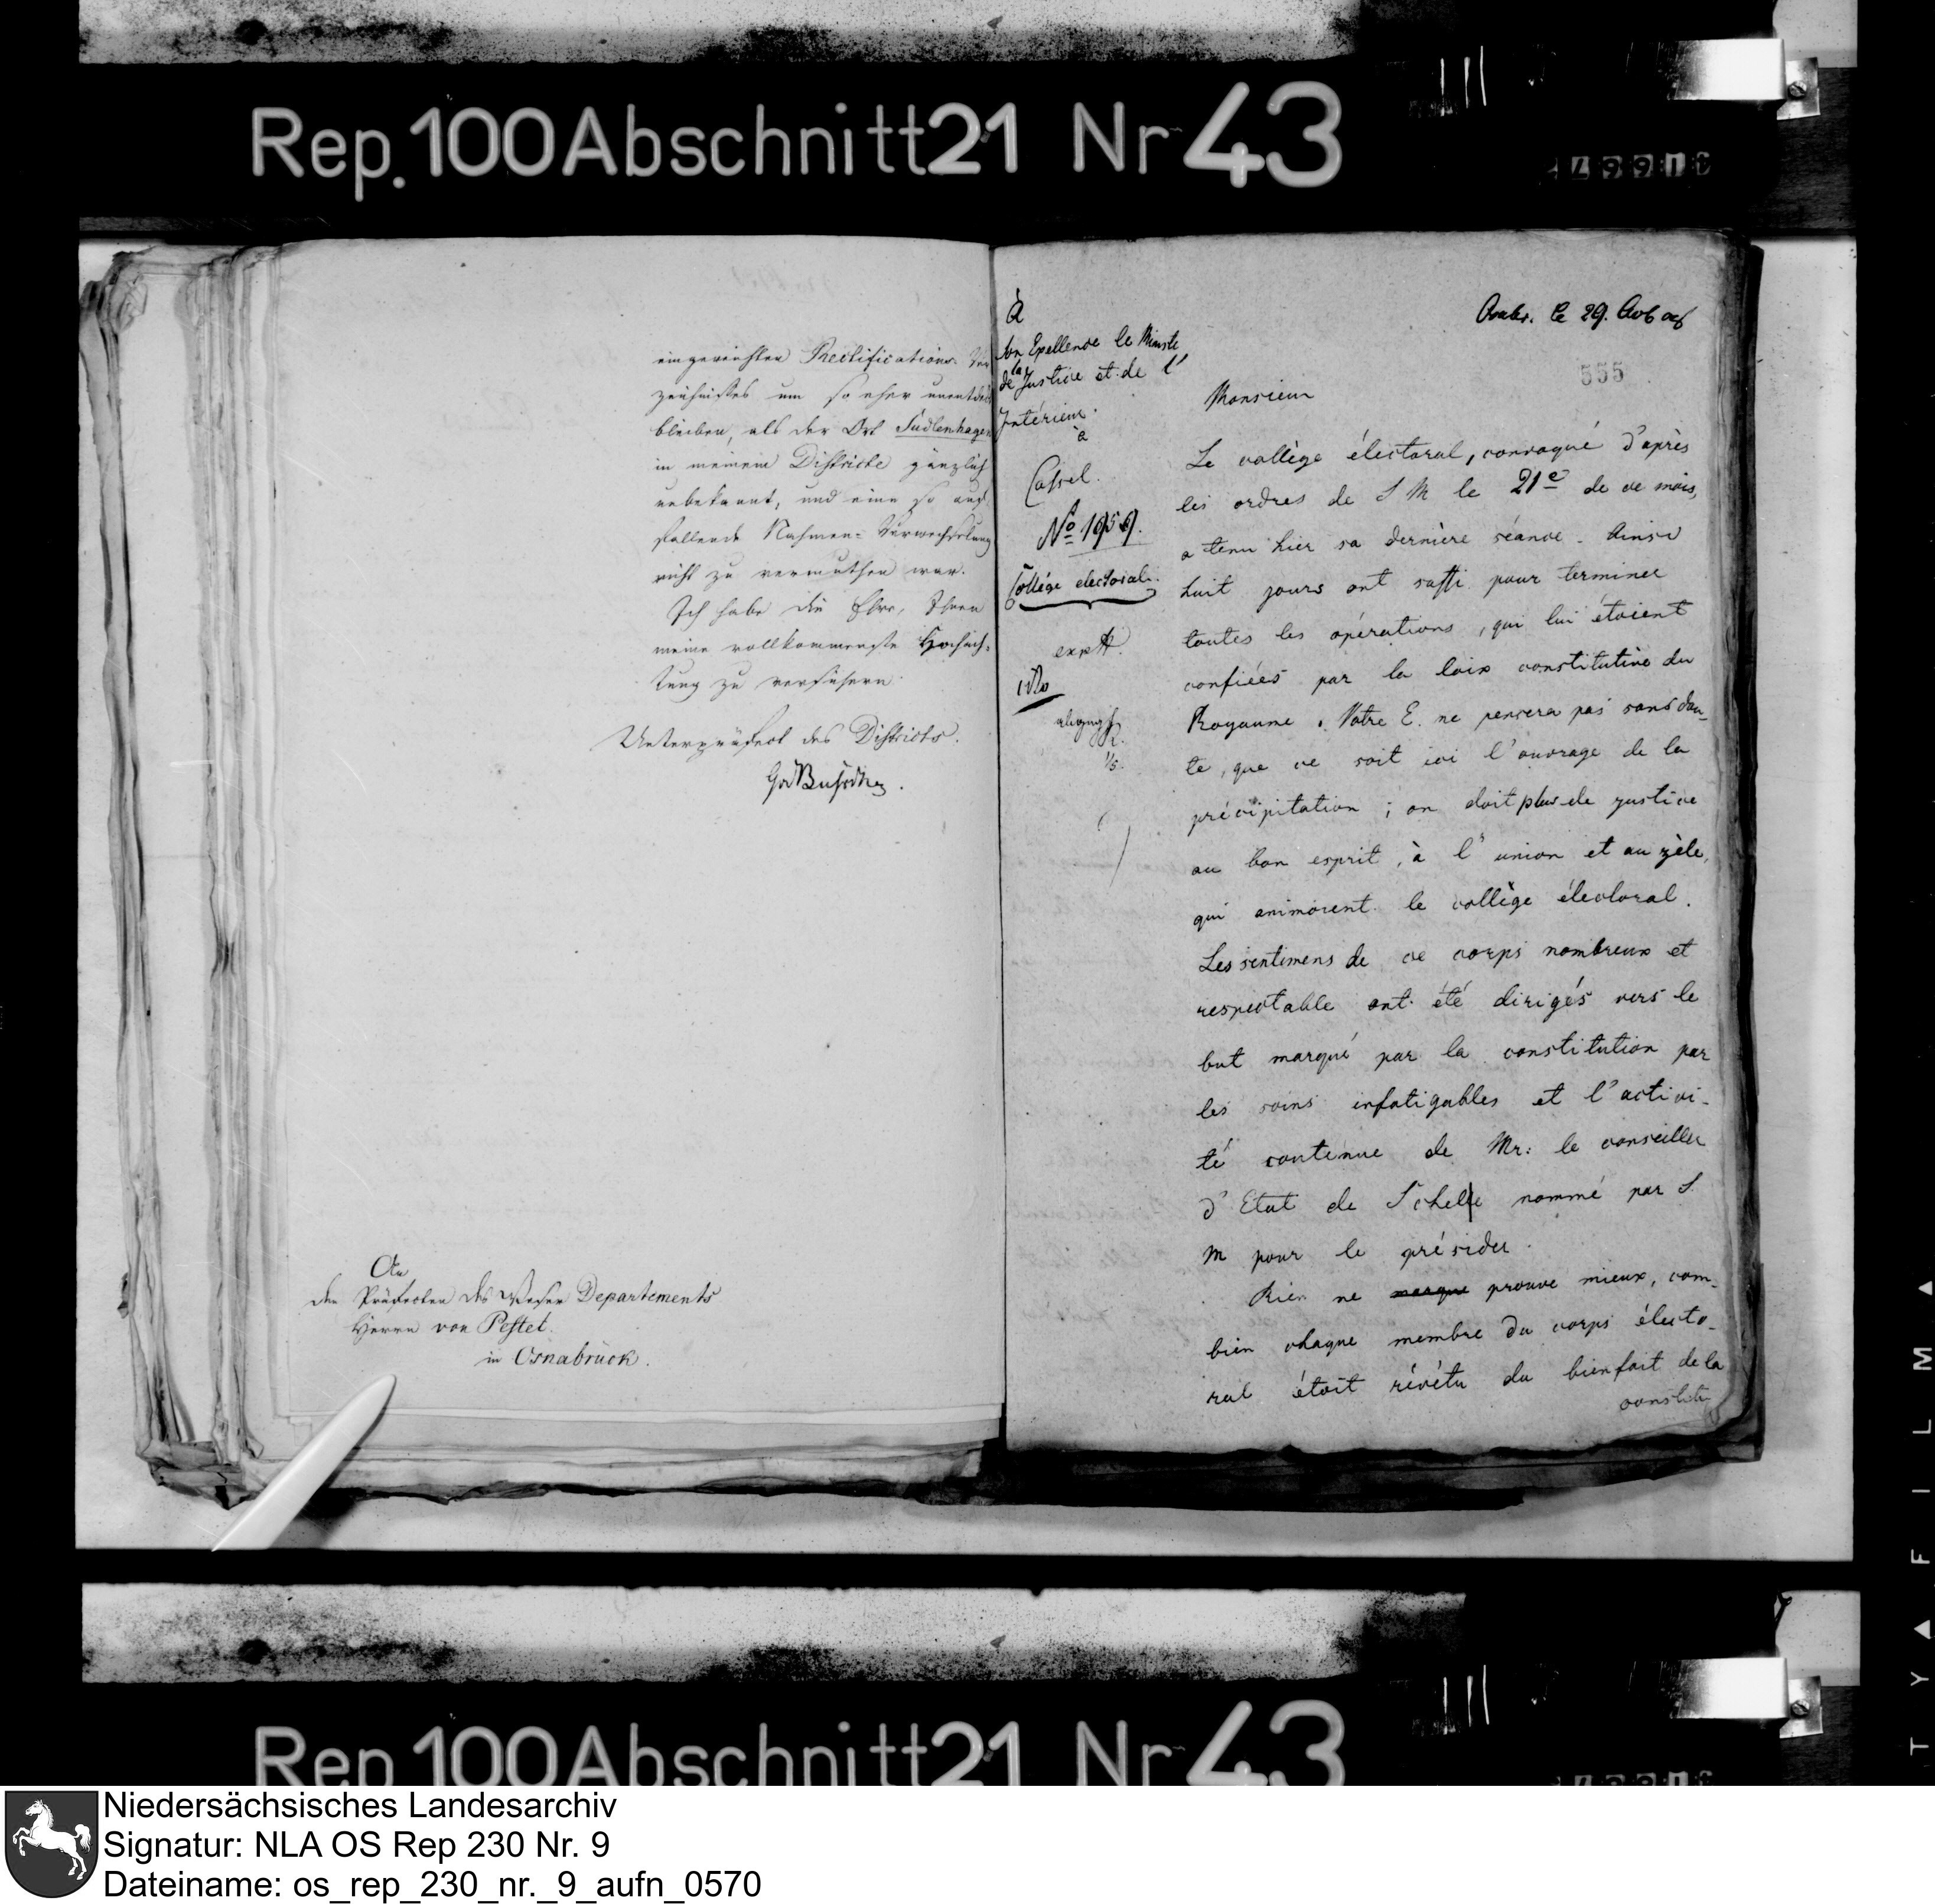 Rep. 100 Abschnitt 21 Nr 43
eingereichten Rectifications Ver
zeichnisses um so eher unentdeckt
bleiben, als der Ort Südlenhagen
in meinem Districte gänzlich
unbekannt, und eine so auf
fallende Nahmen-Verwechselung
nicht zu vermuthen war.
Ich habe die Ehre, Ihnen
meine vollkommenste Hochach-
tung zu versichern
Unterpräfect des Districts.
An
den Präfecten des Weser Departements
Herrn von Pestel
in Osnabrück.
À
Son Excellence le Ministre
de la Justice et de l'
Intérieur
à
Cassel.
No 1959.
Collége electoral.
Osnabr. le 29. Avb 08
555
Monsieur
Le collège électoral, convoqué d'après
les ordres de S M le 21e de ce mois,
a tenu hier sa dernière séance. Ainsi
huit jours ont suffi pour terminer
toutes les opérations, qui lui étoient
confiées par la loix constitutive du
Royaume. Votre E. ne pensera pas sans dou-
te, que ce soit ici l'ouvrage de la
précipitation; on doit plus de justice
au bon esprit, à l'union et au zèle,
qui animoient le collège électoral.
Les sentimens de ce corps nombreux et
respectable ont été dirigés vers le
but marqué par la constitution par
les soins infatigables et l'activi-
té contenue de Mr: le conseiller
d'Etat de Schele nommé par S.
M pour le présider.
Rien ne marque prouve mieux, com-
bien chaque membre du corps électo-
ral étoit révétu du bienfait de la
constitu
Rep 100 Abschnitt 21 Nr 43
T Y ▲ F I L M ▲
Niedersächsisches Landesarchiv
Signatur: NLA OS Rep 230 Nr. 9
Dateiname: os_rep_230_nr._9_aufn_0570